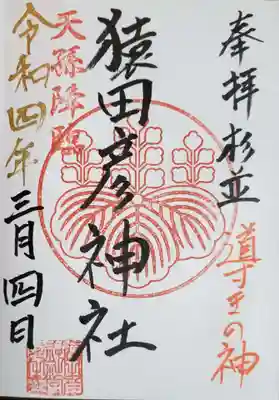 奉拝 杉並
道ひらきの神
猿田彦神社
天孫降臨
令和四年
三月四日